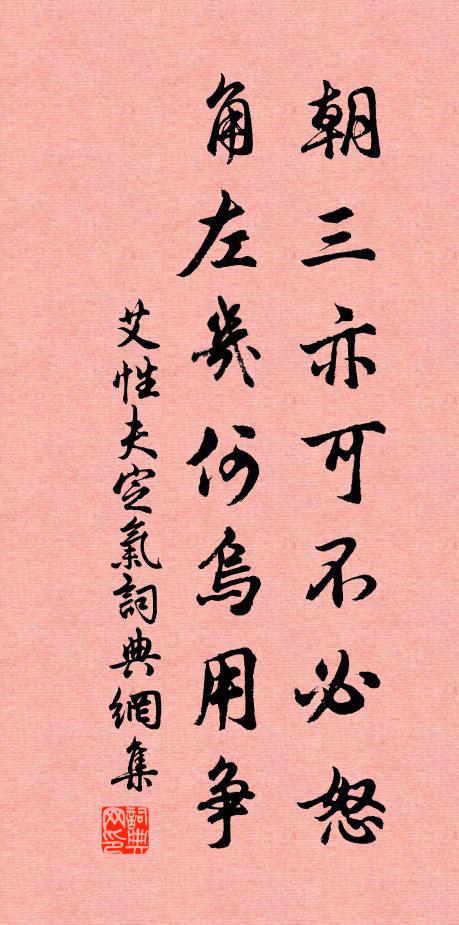 朝三亦可不必怒
角左幾何烏用争
艾性夫定氣詞典網集
詞典網印